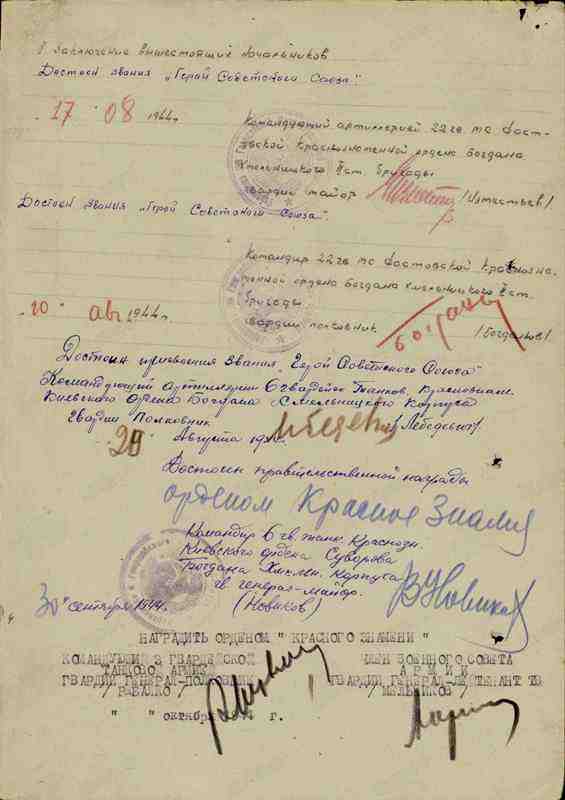 I. Заключение вышестоящих начальников
Достоен звания „Герой Советского Союза".
17 08 1944г.
Командующий артиллерией 22 гв тс Фаст-
вской Краснознаменной ордена Богдана
Хмельницкого II ст. бригады
гвардии майор /Изместьев/
Достоен звания „Герой Советского Союза".
Командир 22 гв тс Фастовской Краснозна-
менной ордена Богдана Хмельницкого II ст.
бригады
гвардии полковник /Богданов/
20 авг 1944г.
Достоин присвоения звания „Герой Советского Союза"
Командующий Артиллерии 6 гвардейск Танков. Краснознам.
Киевского ордена Богдана Хмельницкого Корпуса
Гвардии Полковник /Лебедевич/
29 Августа
Достоин правительственной награды
орденом Красное Знамя
Командир 6 гв. танк. Краснозн.
Киевского ордена Суворова
Богдана Хмельн. Корпуса
гв. генерал-майор.
(Новиков) В Новиков
30 сентября 1944г.
НАГРАДИТЬ ОРДЕНОМ " КРАСНОГО ЗНАМЕНИ "
КОМАНДУЮЩИЙ 3 ГВАРДЕЙСКОЙ ЧЛЕН ВОЕННОГО СОВЕТА
ТАНКОВОЙ АРМИЕЙ А Р М И И
ГВАРДИИ ГЕНЕРАЛ-ПОЛКОВНИК ГВАРДИИ ГЕНЕРАЛ-ЛЕЙТЕНАНТ ТВ
/ РЫБАЛКО / / МЕЛЬНИКОВ /
" " октября г.